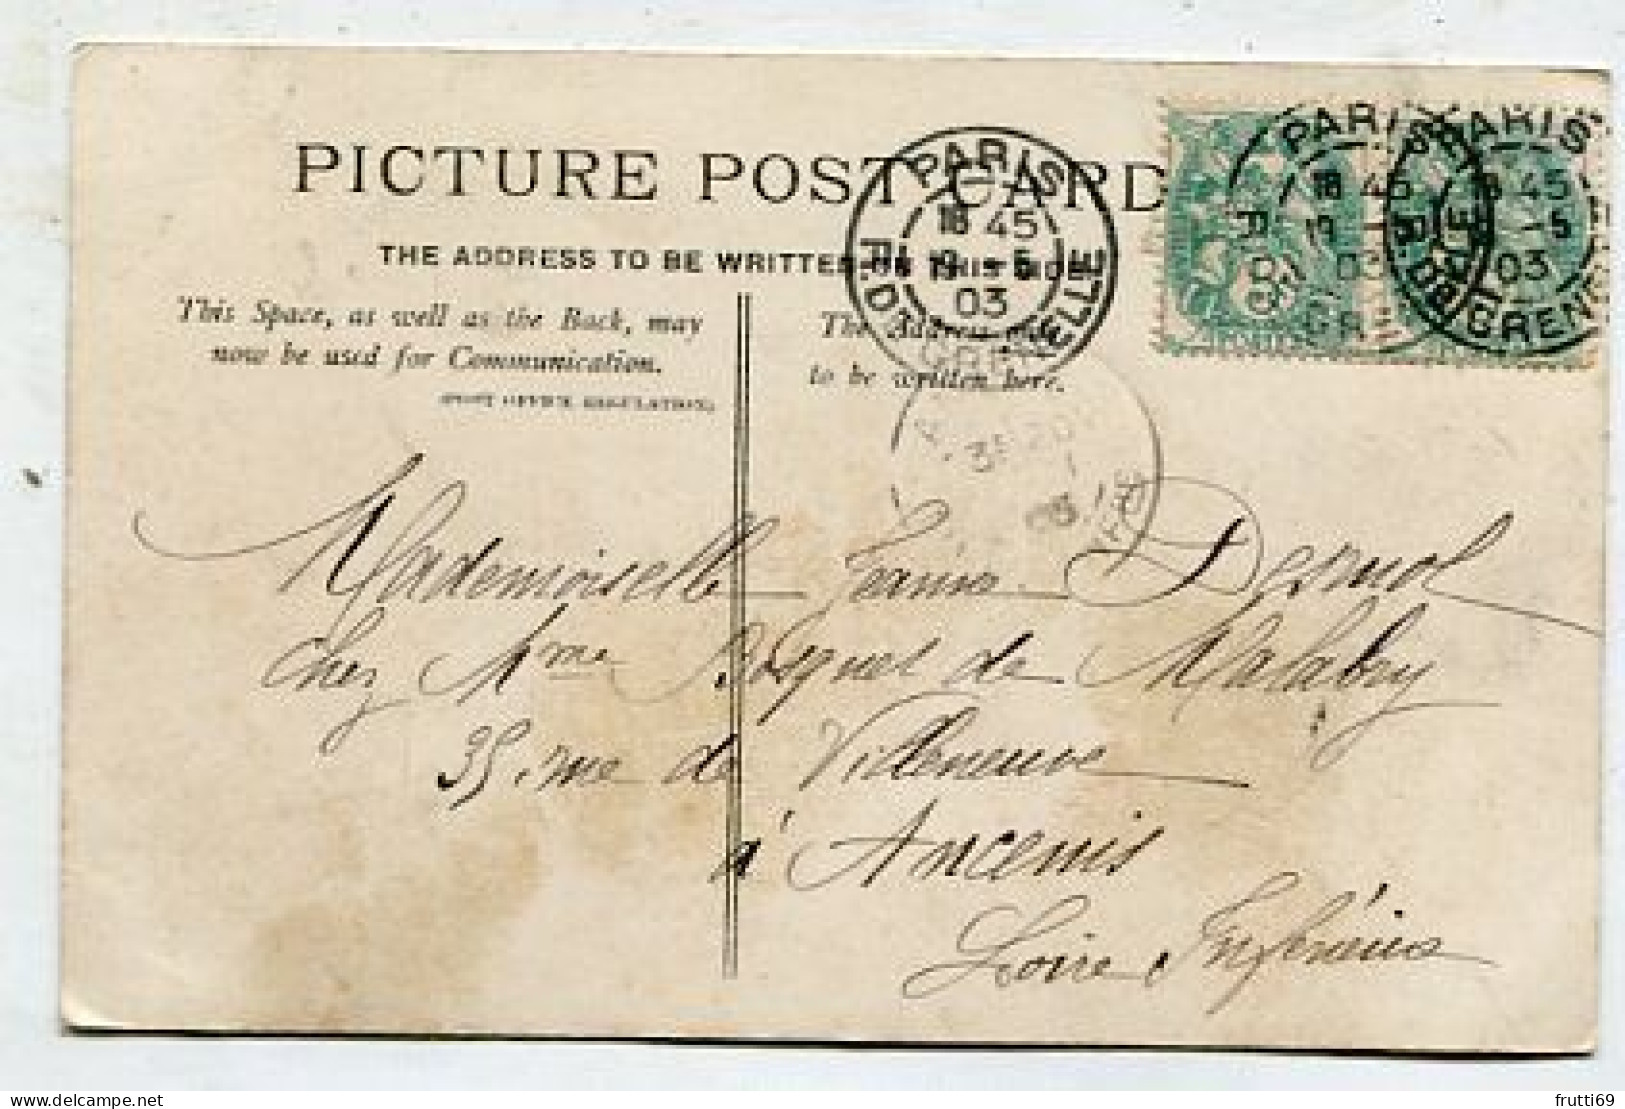 PICTURE POST CARD
THE ADDRESS TO BE WRITTEN ON THIS SIDE
This Space, as well as the Back, may
now be used for Communication.
(POST OFFICE REGULATION)
The Address only
to be written here.
PARIS
18 45
19 - 5
03
R. DE GRENELLE
PARIS
18 45
19 - 5
03
PARIS
18 45
- 5
03
R. DE GREN
Mademoiselle Jeanne
chez Mme Bosquet de Malabry
35, rue de Villeneuve
à Ancenis
Loire Inférieure
www.delcampe.net
frutti69